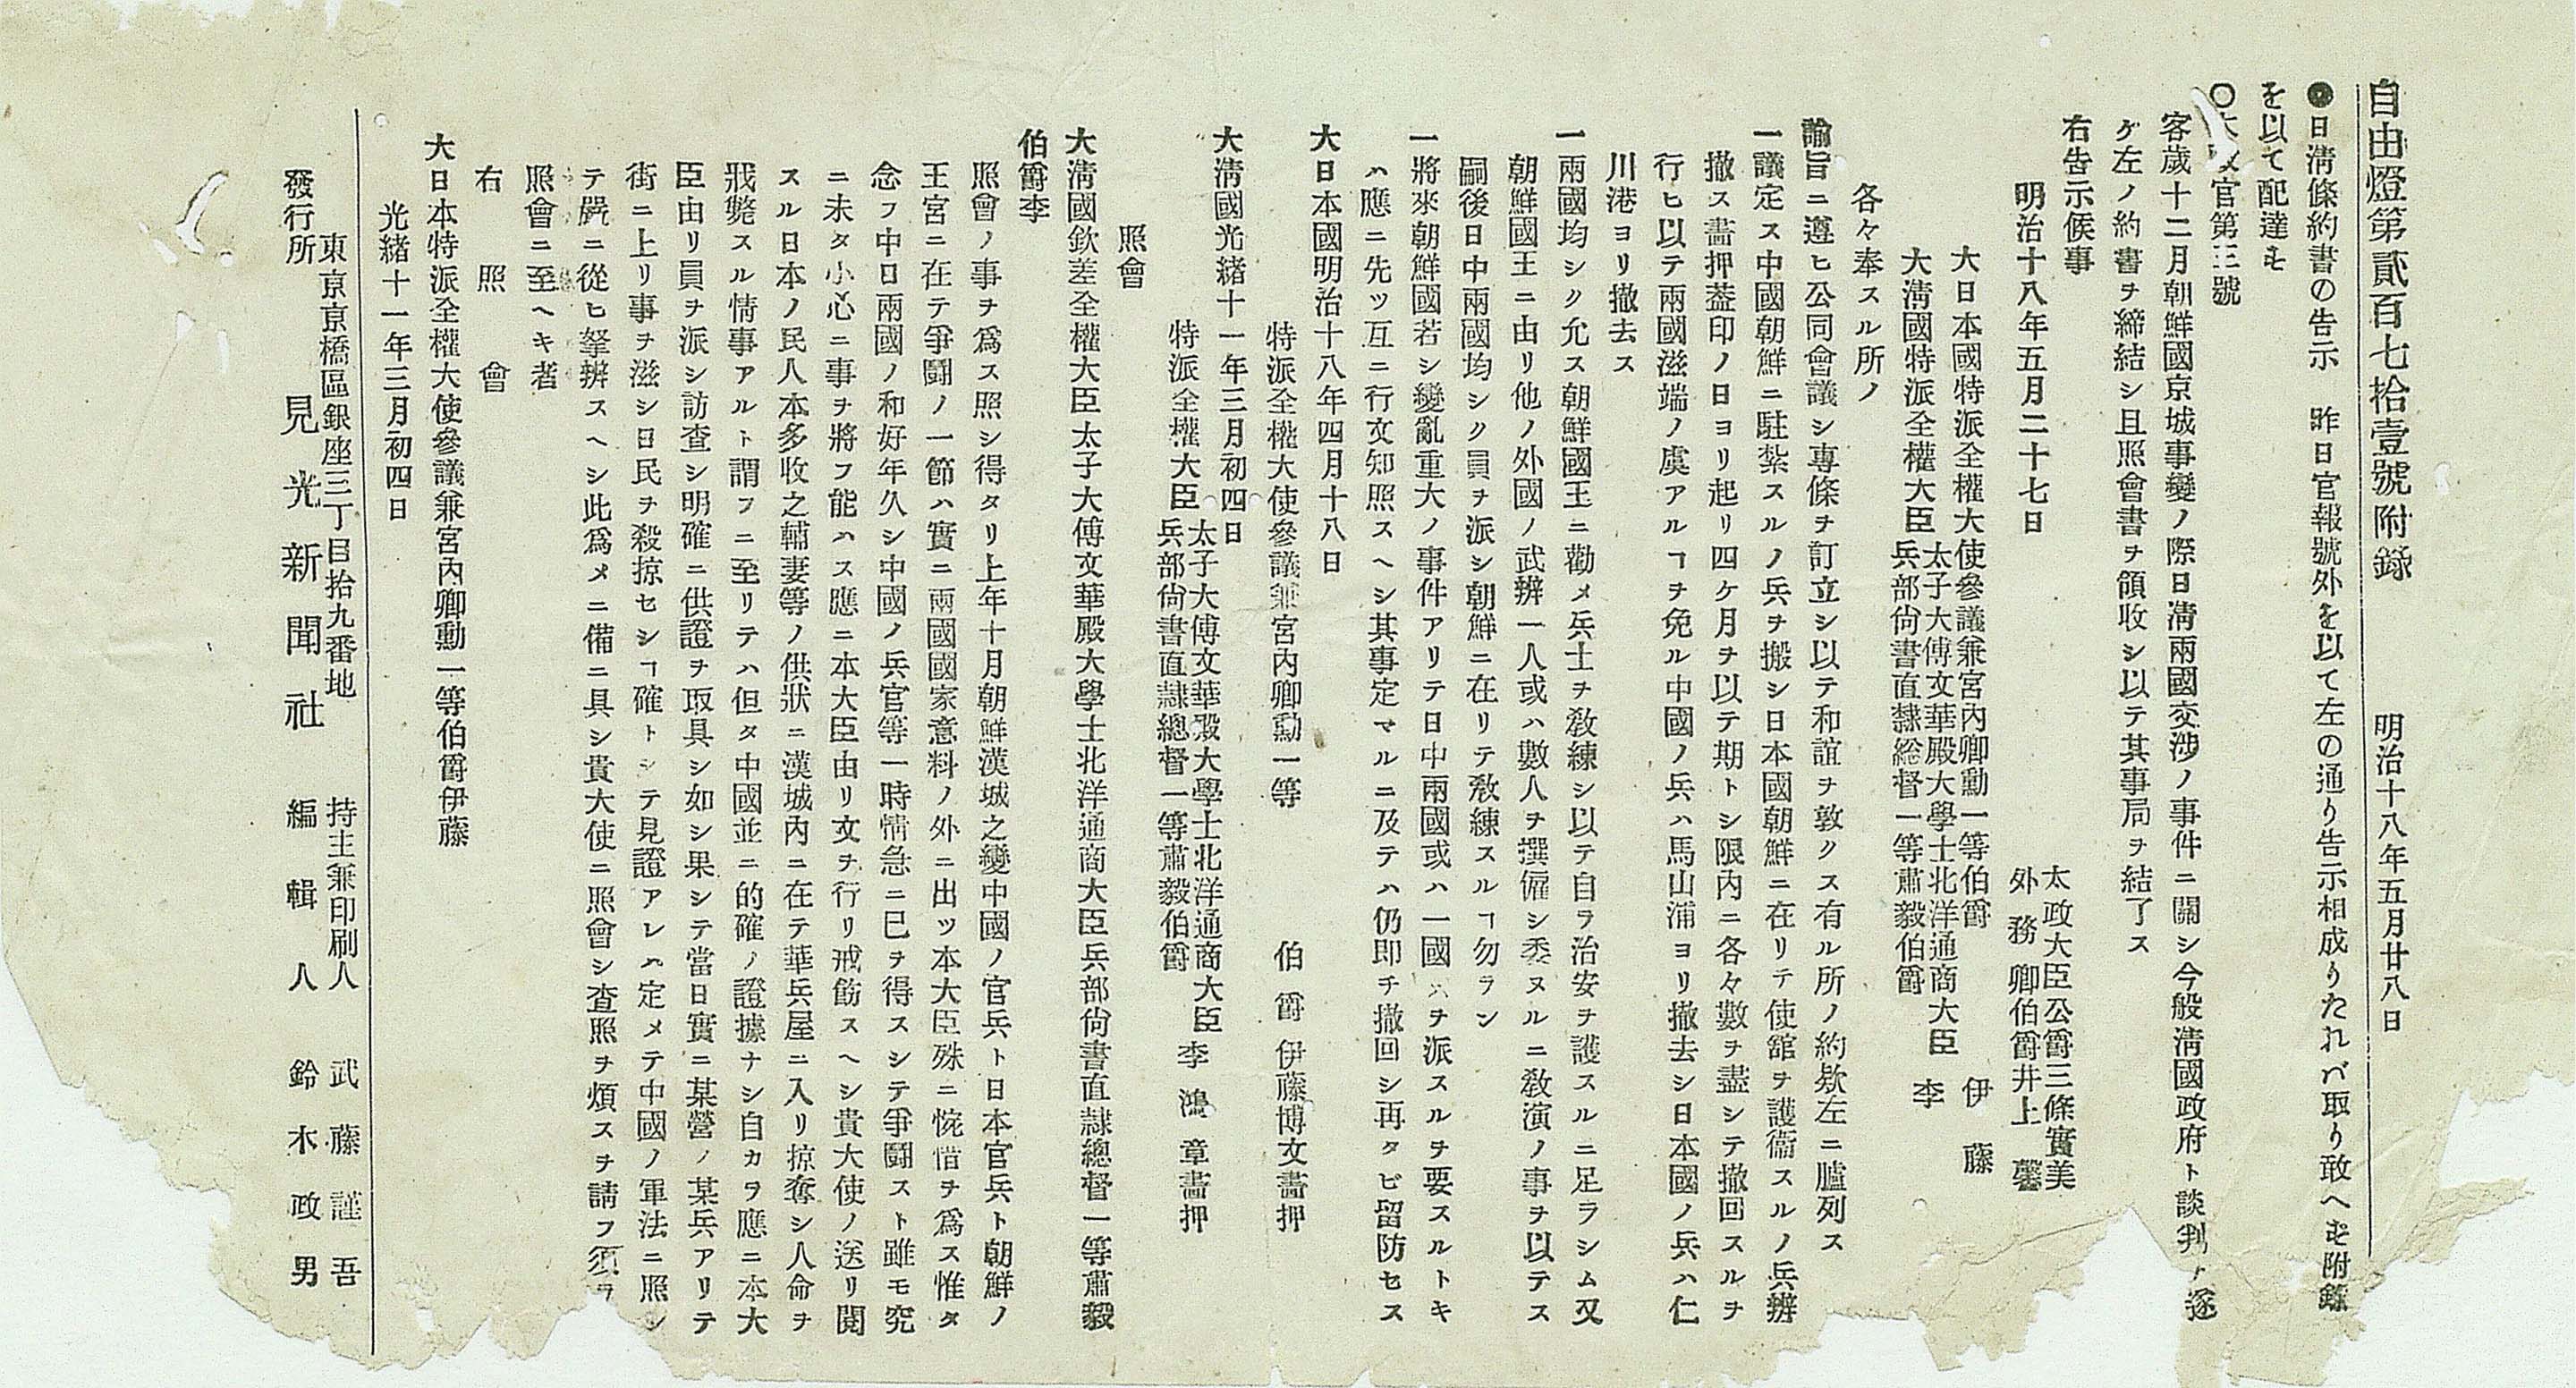 自由燈第貳百七拾壹號附錄　明治十八年五月廿八日
●日淸條約書の告示　昨日官報號外を以て左の通り告示相成りたれバ取り敢へず附錄
を以て配達す
官第三號
客歲十二月朝鮮國京城事變ノ際日淸兩國交涉ノ事件ニ關シ今般淸國政府ト談判ヲ遂
ゲ左ノ約書ヲ締結シ且照會書ヲ領收シ以テ其事局ヲ結了ス
右告示候事
太政大臣公爵三條實美
明治十八年五月二十七日　外務卿伯爵井上馨
大日本國特派全權大使參議兼宮內卿勳一等伯爵　伊藤
大淸國特派全權大臣太子大傅文華殿大學士北洋通商大臣兵部尙書直隸総督一等肅毅伯爵　李
各々奉スル所ノ
諭旨ニ遵ヒ公同會議シ專條ヲ訂立シ以テ和誼ヲ敦クス有ル所ノ約欵左ニ臚列ス
一議定ス中國朝鮮ニ駐紮スルノ兵ヲ搬シ日本國朝鮮ニ在リテ使舘ヲ護衞スルノ兵辨ヲ
撤ス畵押葢印ノ日ヨリ起リ四ケ月ヲ以テ期トシ限內ニ各々數ヲ盡シテ撤回スルヲ
行ヒ以テ兩國滋端ノ虞アルヿヲ免ル中國ノ兵ハ馬山浦ヨリ撤去シ日本國ノ兵ハ仁
川港ヨリ撤去ス
一兩國均シク允ス朝鮮國王ニ勸メ兵士ヲ敎練シ以テ自ラ治安ヲ護スルニ足ラシム又
朝鮮國王ニ由リ他ノ外國ノ武辨一人或ハ數人ヲ撰僱シ委ヌルニ敎演ノ事ヲ以テス
嗣後日中兩國均シク員ヲ派シ朝鮮ニ在リテ敎練スルヿ勿ラン
一將來朝鮮國若シ變亂重大ノ事件アリテ日中兩國或ハ一國兵ヲ派スルヲ要スルトキ
ハ應ニ先ツ互ニ行文知照スヘシ其事定マルニ及テハ仍即チ撤回シ再タビ留防セス
大日本國明治十八年四月十八日
特派全權大使參議兼宮內卿勳一等　伯爵　伊藤博文畵押
大淸國光緖十一年三月初四日
特派全權大臣太子大傅文華殿大學士北洋通商大臣兵部尙書直隸總督一等肅毅伯爵　李鴻章畵押
照會
大淸國欽差全權大臣太子大傅文華殿大學士北洋通商大臣兵部尙書直隸總督一等肅毅
伯爵李
照會ノ事ヲ爲ス照シ得タリ上年十月朝鮮漢城之變中國ノ官兵ト日本官兵ト朝鮮ノ
王宮ニ在テ爭鬪ノ一節ハ實ニ兩國國家意料ノ外ニ出ツ本大臣殊ニ惋惜ヲ爲ス惟タ
念フ中日兩國ノ和好年久シ中國ノ兵官等一時情急ニ已ヲ得スシテ爭鬪スト雖モ究
ニ未タ小心ニ事ヲ將フ能ハス應ニ本大臣由リ文ヲ行リ戒飭スヘシ貴大使ノ送リ閱
スル日本ノ民人本多收之輔妻等ノ供狀ニ漢城內ニ在テ華兵屋ニ入リ掠奪シ人命ヲ
戕斃スル情事アルト謂フニ至リテハ但タ中國並ニ的確ノ證據ナシ自カラ應ニ本大
臣由リ員ヲ派シ訪查シ明確ニ供證ヲ取具シ如シ果シテ當日實ニ某營ノ某兵アリテ
街ニ上リ事ヲ滋シ日民ヲ殺掠セシヿ確トシテ見證アレハ定メテ中國ノ軍法ニ照シ
テ嚴ニ從ヒ拏辨スヘシ此爲メニ備ニ具シ貴大使ニ照會シ查照ヲ煩スヲ請フ須ラ
照會ニ至ヘキ者
右　照　會
大日本特派全權大使參議兼宮內卿勳一等伯爵伊藤
光緖十一年三月初四日
東京京橋區銀座三丁目拾九番地　持主兼印刷人　武藤謹吾
發行所　見光新聞社　編輯人　鈴木政男